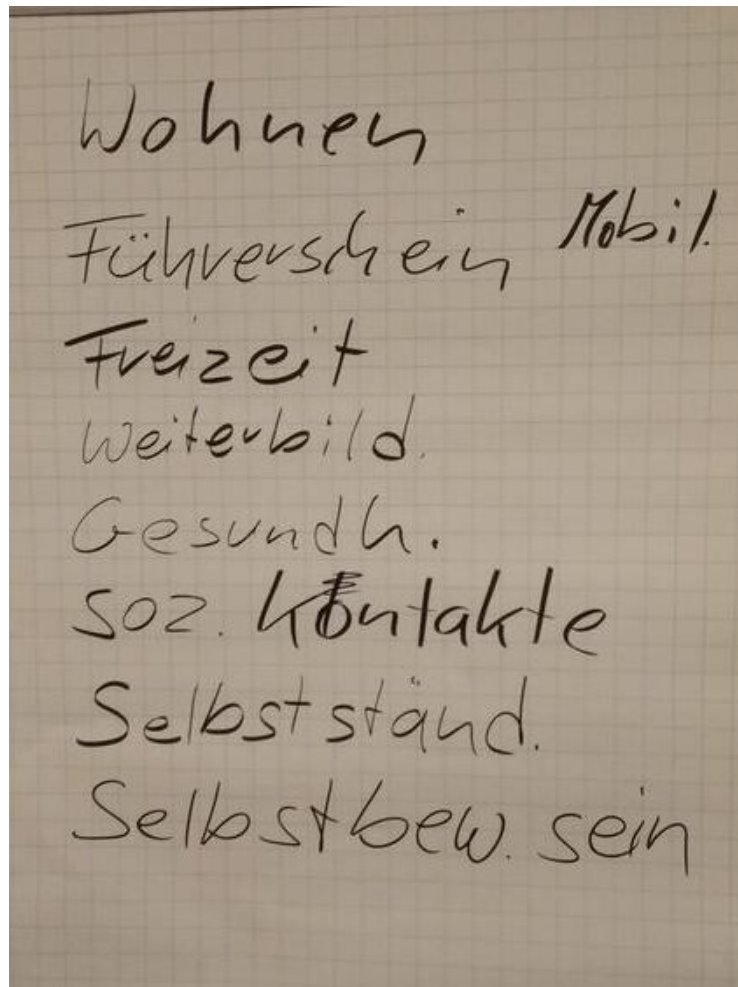 Wohnen
Führerschein Mobil.
Freizeit
Weiterbild.
Gesundh.
soz. Kontakte
Selbstständ.
Selbstbew. sein